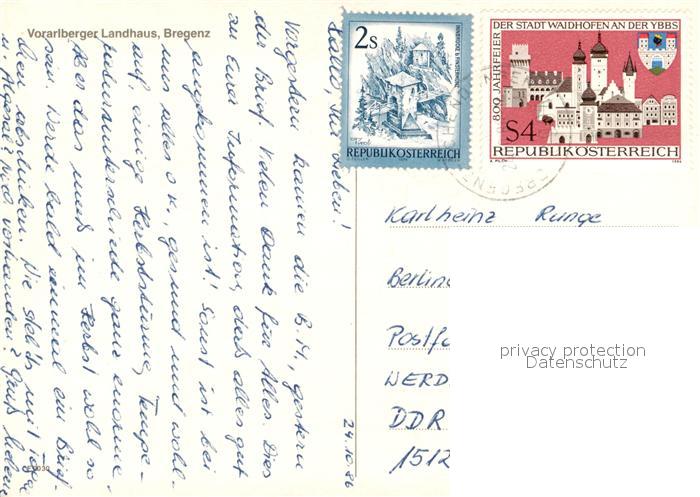 Vorarlberger Landhaus, Bregenz
Hallo, Ihr Lieben!
Vorgestern kamen die B. 14, gestern
der Brief. Vielen Dank für Alles. Dies
zu Eurer Information, daß alles gut
angekommen ist! Sonst ist bei
uns alles o.k., gesund und wohl-
auf, einige Herbststürme, Tempe-
raturunterschiede ganz enorme.
Aber das muß im Herbst wohl so
sein. Werde bald einmal ein Brief-
lein abschicken. Wie steht's mit
vorhanden? Gruß
24.10.86
2s
REPUBLIK ÖSTERREICH
800 JAHRFEIER DER STADT WAIDHOFEN AN DER YBBS
S4
REPUBLIK ÖSTERREICH
1986
Karlheinz Runge
Berlin
Postf
WERD
DDR
1512
privacy protection
Datenschutz